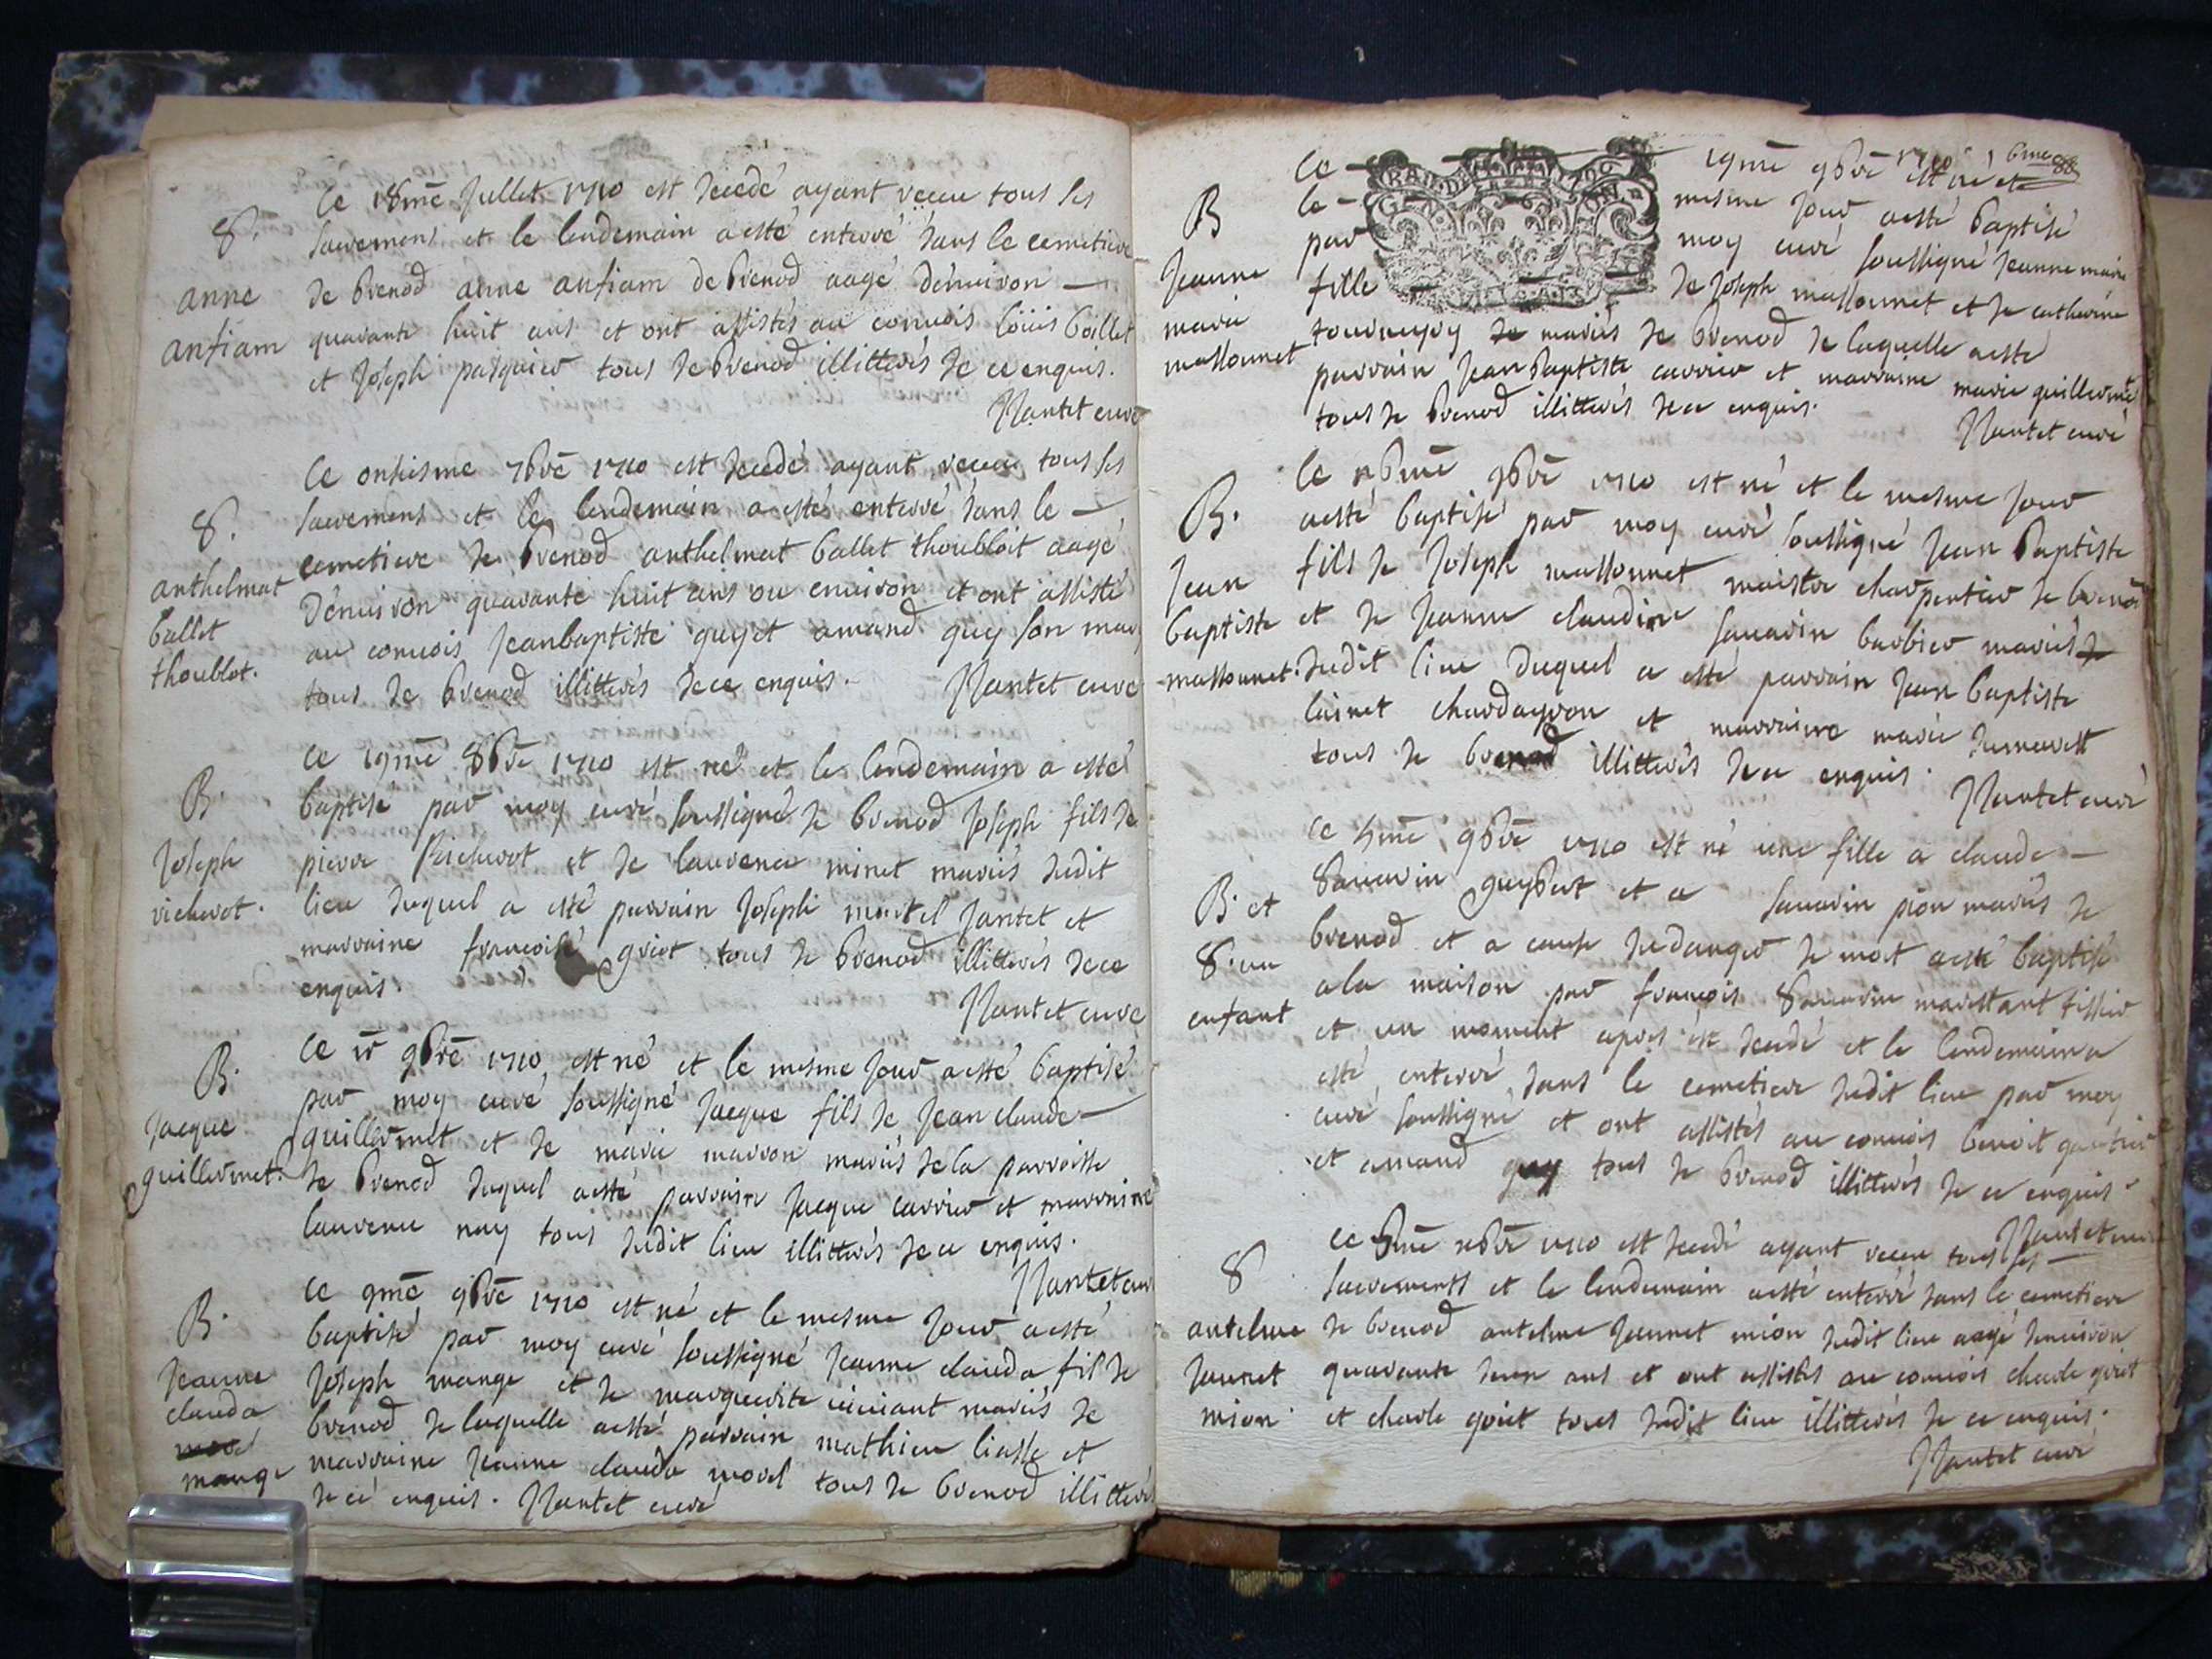 Ce 18me Jullet 1710 est decedé ayant receu tous ses
S.
sacremens et le lendemain a esté enterré dans le cemetiere
anne
de brenod anne anfiam de brenod aagé d'enuiron —
anfiam
quarante huit ans et ont assistés au conuois loüis ballet
et Joseph pasquier tous de brenod illitterés de ce enquis.
Nantet curé
Ce onsiesme 7bre 1710 est decedé ayant receu tous ses
S.
sacremens et le lendemain a esté enterré dans le —
anthelmat
cemetiere de brenod anthelmat ballet thoublot aagé
ballet
d'enuiron quarante huit ans ou enuiron et ont assisté
thoublot.
au conuois Jeanbaptiste guy et amand guy son
tous de brenod illitterés de ce enquis.
Nantet curé
Ce 19me 8bre 1710 est né et le lendemain a esté
B.
baptisé par moy curé soussigné de brenod Joseph fils de
Joseph
pierre Richerot et de laurence minet mariés dudit
richerot.
lieu duquel a esté parrain Joseph martel Jantet et
marraine françoise griot tous de brenod illitterés de ce
enquis.
Nantet curé
Ce 9bre 1710 est né et le mesme jour a esté baptisé
B.
par moy curé soussigné Jacque fils de Jean claude —
Jacque
guillermet et de marie marron mariés de la parroisse
guillermet.
de brenod duquel a esté parrain Jacque carrier et marraine
laurence ray tous dudit lieu illitterés de ce enquis.
Nantet curé
Ce 9me 9bre 1710 est né et le mesme jour a esté
B.
baptisé par moy curé soussigné Jeanne clauda fil de
Jeanne
Joseph mange et de marguerite mariés de
clauda
brenod de laquelle a esté parrain mathieu liasse et
morel
mange
marraine Jeanne clauda morel tous de brenod illitterés
de ce enquis. Nantet curé
6me 88
Ce — 19me 9bre 1710 est né et
B
le — mesme jour a esté baptisé
Jeanne
par moy curé soussigné Jeanne marie
marie
fille de Joseph massonnet et de catherine
massonnet
de mariés de brenod de laquelle a esté
parrain Jean baptiste carrier et marraine marie guillermet
tous de brenod illitterés de ce enquis.
Nantet curé
Ce 9bre 1710 est né et le mesme jour
B.
a esté baptisé par moy curé soussigné Jean baptiste
Jean
fils de Joseph massonnet maistre charpentier de brenod
baptiste
et de Jeanne claudine sauarin barbier mariés
massonnet.
dudit lieu duquel a esté parrain Jean baptiste
et marraine marie
tous de brenod illitterés de ce enquis.
Nantet curé
Ce 9bre 1710 est né une fille a claude —
B. et
Sauarin guybert et a sauarin pion mariés de
S. un
brenod et a cause du danger de mort a esté baptisé
enfant
a la maison par françois Sauarin tissier
et un moment apres est decedé et le lendemain a
esté enterré dans le cemetiere dudit lieu par moy
curé soussigné et ont assistés au conuois benoit
et amand guy tous de brenod illitterés de ce enquis.
Nantet curé
Ce 1710 est decedé ayant receu tous ses —
S
sacrements et le lendemain a esté enterré dans le cemetiere
antelme
de brenod antelme Jannet mion dudit lieu aagé d'enuiron
Jannet
quarante deux ans et ont assistés au conuois charle
mion.
et charle tous dudit lieu illitterés de ce enquis.
Nantet curé